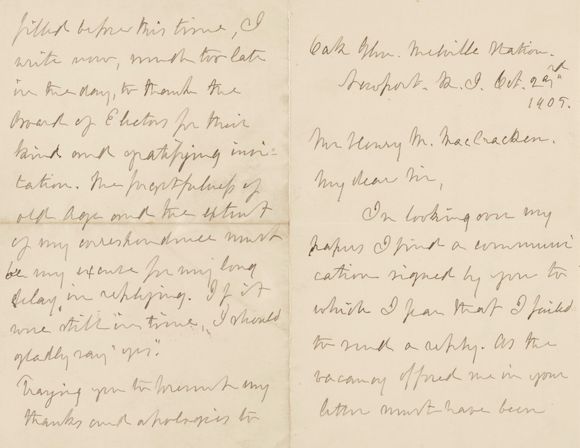 Oak Glen. Melville Station.
Newport. R. I. Oct. 22nd
1905.
Mr Henry M. MacCracken.
My dear Sir,
In looking over my
papers I find a communi
cation signed by you to
which I fear that I failed
to send a reply. As the
vacancy offered me in your
letter must have been
filled before this time, I
write now, much too late
in the day, to thank the
Board of Electors for their
kind and gratifying invi-
tation. The forgetfulness of
old Age and the extent
of my correspondence must
be my excuse for my long
delay in replying. If it
were still in time, I should
gladly say "yes".
Praying you to present my
thanks and apologies to